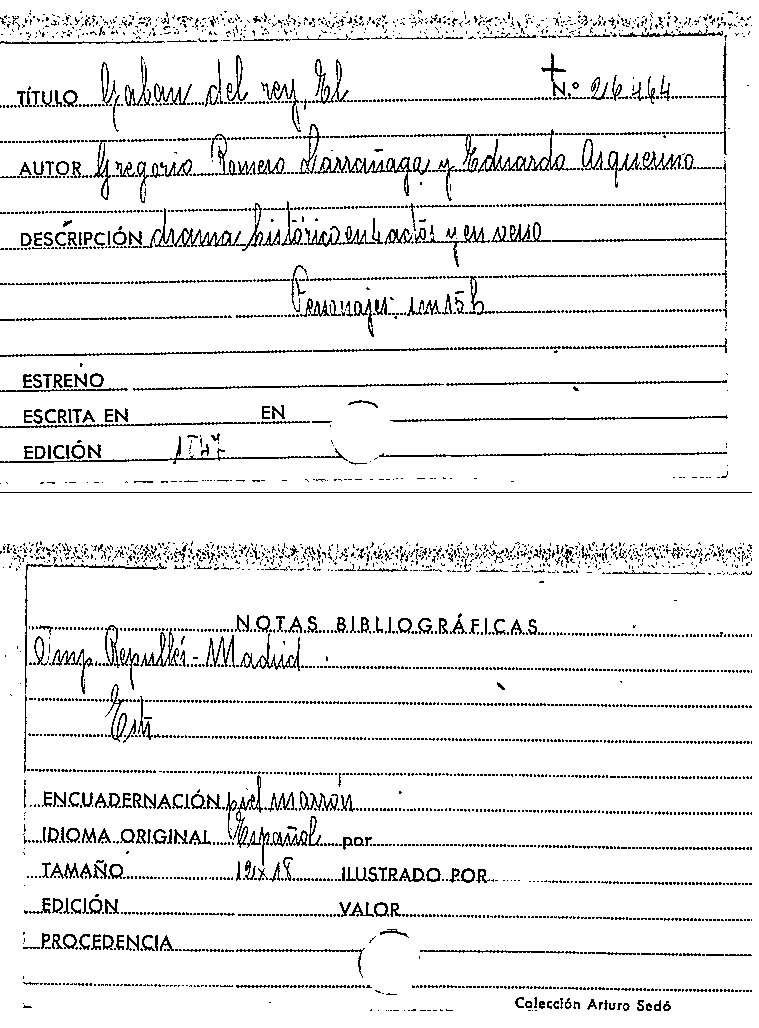 TÍTULO Gaban del rey, El N.º 26.464
AUTOR Gregorio Romero Larrañaga y Eduardo Asquerino
DESCRIPCIÓN drama histórico en 4 actos y en verso
Personajes: 1m 15h
ESTRENO
ESCRITA EN EN
EDICIÓN 1847
NOTAS BIBLIOGRÁFICAS
Imp. Repullés - Madrid
ENCUADERNACIÓN piel marrón
IDIOMA ORIGINAL Español por
TAMAÑO 12x18 ILUSTRADO POR
EDICIÓN VALOR
PROCEDENCIA
Colección Arturo Sedó